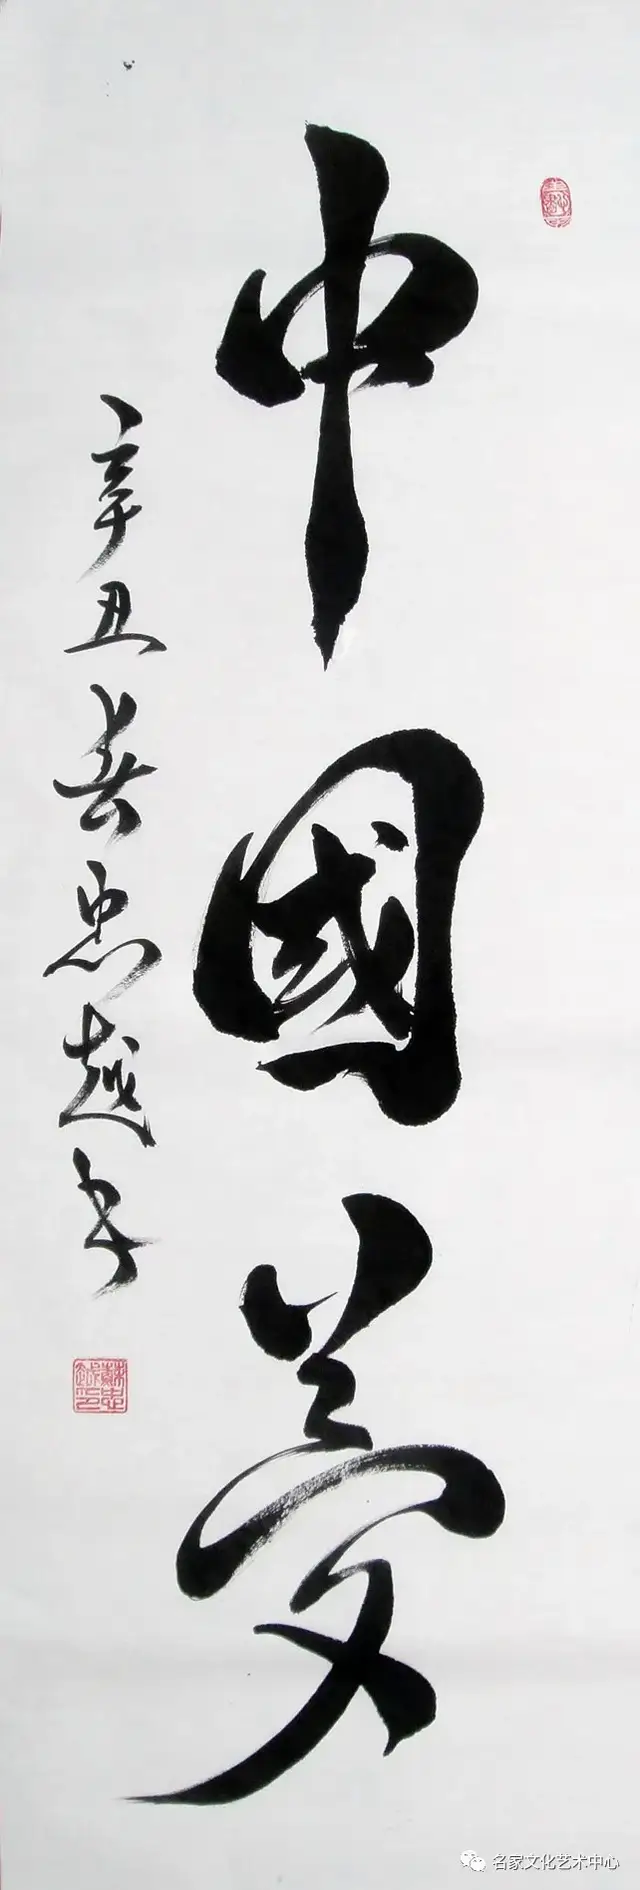 中國夢
辛丑春忠越書
名家文化艺术中心